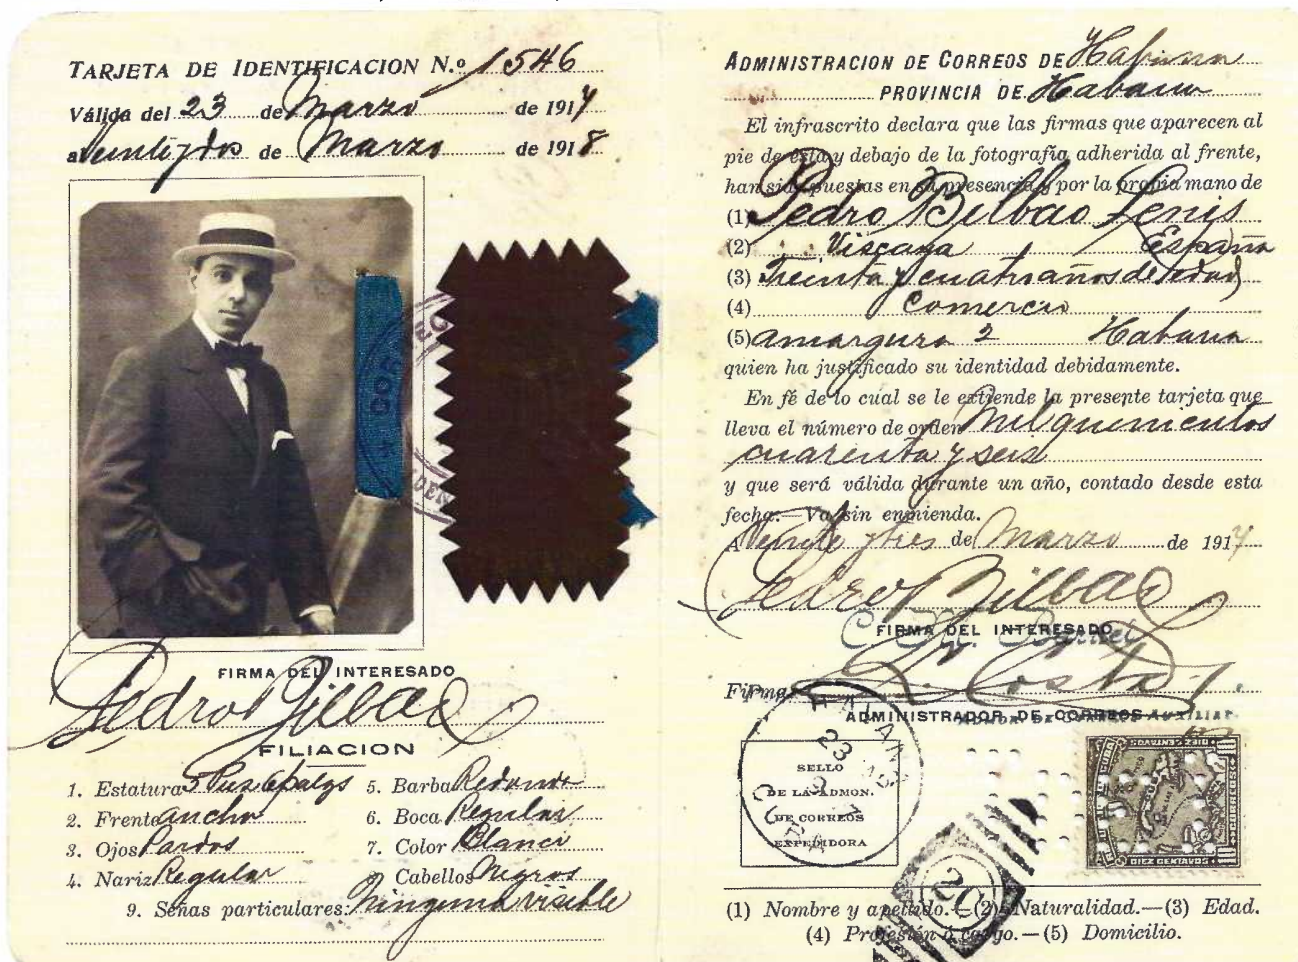 TARJETA DE IDENTIFICACION N.º 1546
Válida del 23 de Marzo de 1917
a Veintidos de Marzo de 1918
FIRMA DEL INTERESADO
Pedro Bilbao
FILIACION
1. Estatura 5 Pies 6 palgs
2. Frente ancha
3. Ojos Pardos
4. Nariz Regular
5. Barba Redonda
6. Boca Regular
7. Color Blanco
8. Cabellos Negros
9. Señas particulares: Ninguna visible
ADMINISTRACION DE CORREOS DE Habana
PROVINCIA DE Habana
El infrascrito declara que las firmas que aparecen al
pie de ésta y debajo de la fotografía adherida al frente,
han sido puestas en su presencia y por la propia mano de
(1) Pedro Bilbao Lenis
(2) Viscaya España
(3) Treinta y cuatro años de edad
(4) Comercio
(5) Amargura 2 Habana
quien ha justificado su identidad debidamente.
En fé de lo cual se le extiende la presente tarjeta que
lleva el número de orden Mil quinientos
cuarenta y seis
y que será válida durante un año, contado desde esta
fecha.—Va sin enmienda.
A Veinte y tres de Marzo de 1917
Pedro Bilbao
FIRMA DEL INTERESADO
Firma Costa
ADMINISTRADOR DE CORREOS AUXILIAR
HABANA
23
CUBA
SELLO
DE LA ADMON.
DE CORREOS
EXPEDIDORA
CUBA
CORREOS
DIEZ CENTAVOS
20
(1) Nombre y apellido.—(2) Naturalidad.—(3) Edad.
(4) Profesión o cargo.—(5) Domicilio.